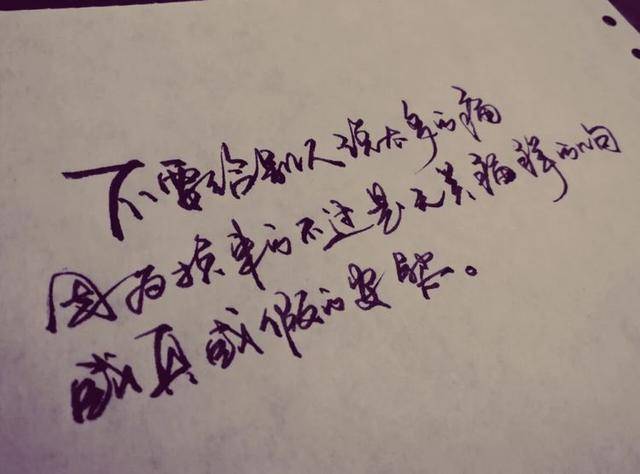 不需给别人说太多的痛
因为换来的不过是无关痛痒的问
或真或假的安慰。